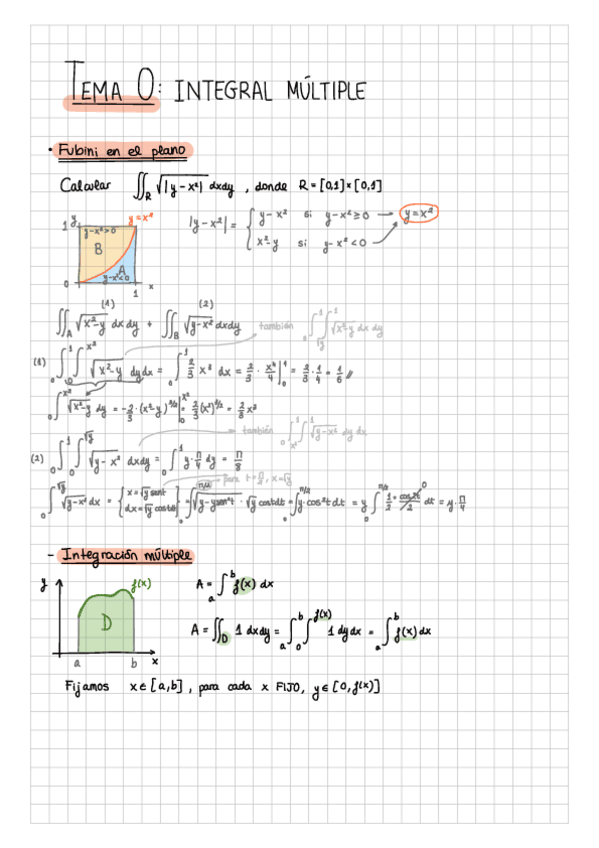 TEMA 0: INTEGRAL MÚLTIPLE
• Fubini en el plano
Calcular ∬_R √|y-x²| dxdy, donde R = [0,1]×[0,1]
y
1
y=x²
y-x²>0
B
A
y-x²<0
0
1
x
|y-x²| = { y-x² si y-x²≥0 → y=x²
x²-y si y-x²<0
(1) (2)
∬_A √x²-y dx dy + ∬_B √y-x² dxdy también ∫_0^1 ∫_√y^1 √x²-y dx dy
(1) ∫_0^1 ∫_0^x² √x²-y dydx = ∫_0^1 2/3 x³ dx = 2/3 · x⁴/4 |_0^1 = 2/3 · 1/4 = 1/6 //
∫_0^x² √x²-y dy = -2/3 · (x²-y)^3/2 |_0^x² = 2/3 (x²)^3/2 = 2/3 x³
también ∫_0^1 ∫_x²^1 √y-x² dy dx
(2) ∫_0^1 ∫_0^√y √y-x² dxdy = ∫_0^1 y·π/4 dy = π/8
para t=π/2, x=√y
∫_0^√y √y-x² dx = { x=√y sent dx=√y costdt } = ∫_0^π/2 √y-ysen²t · √y costdt = ∫_0^π/2 y·cos²t dt = y ∫_0^π/2 1/2 + cos2t/2 dt = y·π/4
0
- Integración múltiple
y
f(x)
D
a
b
x
A = ∫_a^b f(x) dx
A = ∬_D 1 dxdy = ∫_a^b ∫_0^f(x) 1 dydx = ∫_a^b f(x) dx
Fijamos x∈[a,b], para cada x FIJO, y∈[0,f(x)]